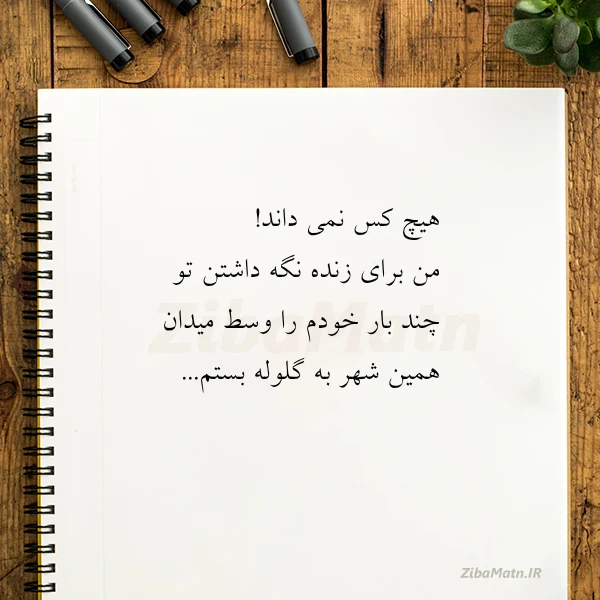 هیچ کس نمی داند!
من برای زنده نگه داشتن تو
چند بار خودم را وسط میدان
همین شهر به گلوله بستم...
ZibaMatn
ZibaMatn.IR